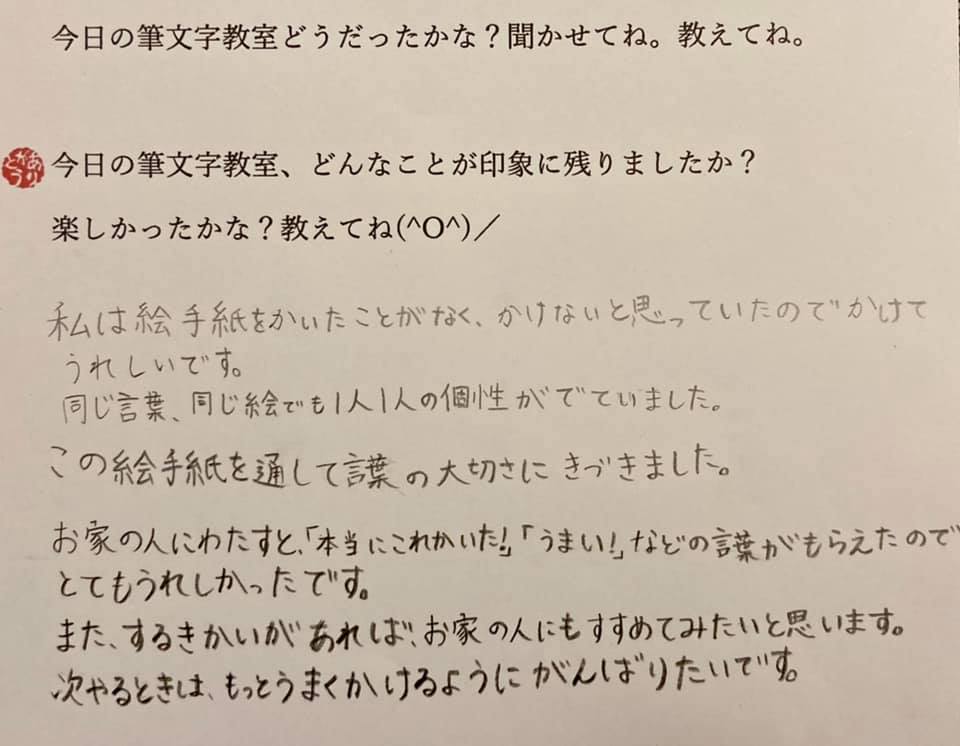 今日の筆文字教室どうだったかな？聞かせてね。教えてね。
ありがとう
今日の筆文字教室、どんなことが印象に残りましたか？
楽しかったかな？教えてね(^O^)／
私は絵手紙をかいたことがなく、かけないと思っていたのでかけて
うれしいです。
同じ言葉、同じ絵でも1人1人の個性がでていました。
この絵手紙を通して言葉の大切さにきづきました。
お家の人にわたすと、「本当にこれかいた！」「うまい！」などの言葉がもらえたので
とてもうれしかったです。
また、するきかいがあれば、お家の人にもすすめてみたいと思います。
次やるときは、もっとうまくかけるようにがんばりたいです。